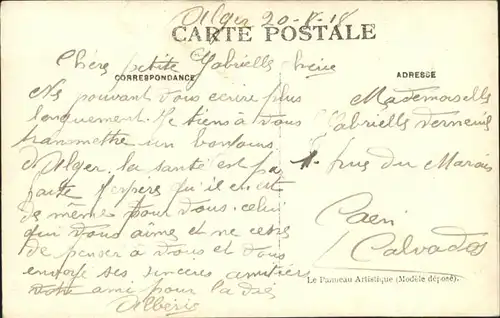 Alger 20-5-18
CARTE POSTALE
Chère petite Gabrielle chérie
CORRESPONDANCE
ADRESSE
Ne pouvant vous écrire plus
longuement. Je tiens à vous
transmettre un bonjour
d'Alger. la santé est par
faite j'espère qu'il en est
de même pour vous. celui
qui vous aime et ne cesse
de penser à vous et vous
envoye ses sincères amitiés
ami pour la vie
Albéric
Mademoiselle
Gabrielle Verneuil
rue du Marais
Caen
Calvados
Le Panneau Artistique (Modèle déposé).